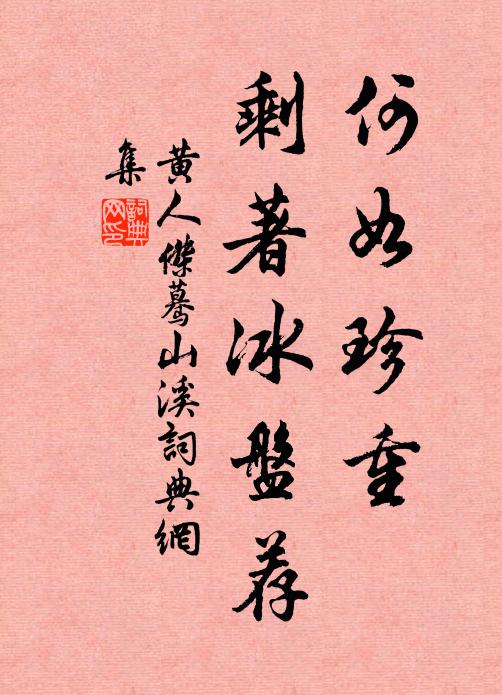 何如珍重
剩著冰盤荐
黄人傑驀山溪詞典網
集
詞典
网印